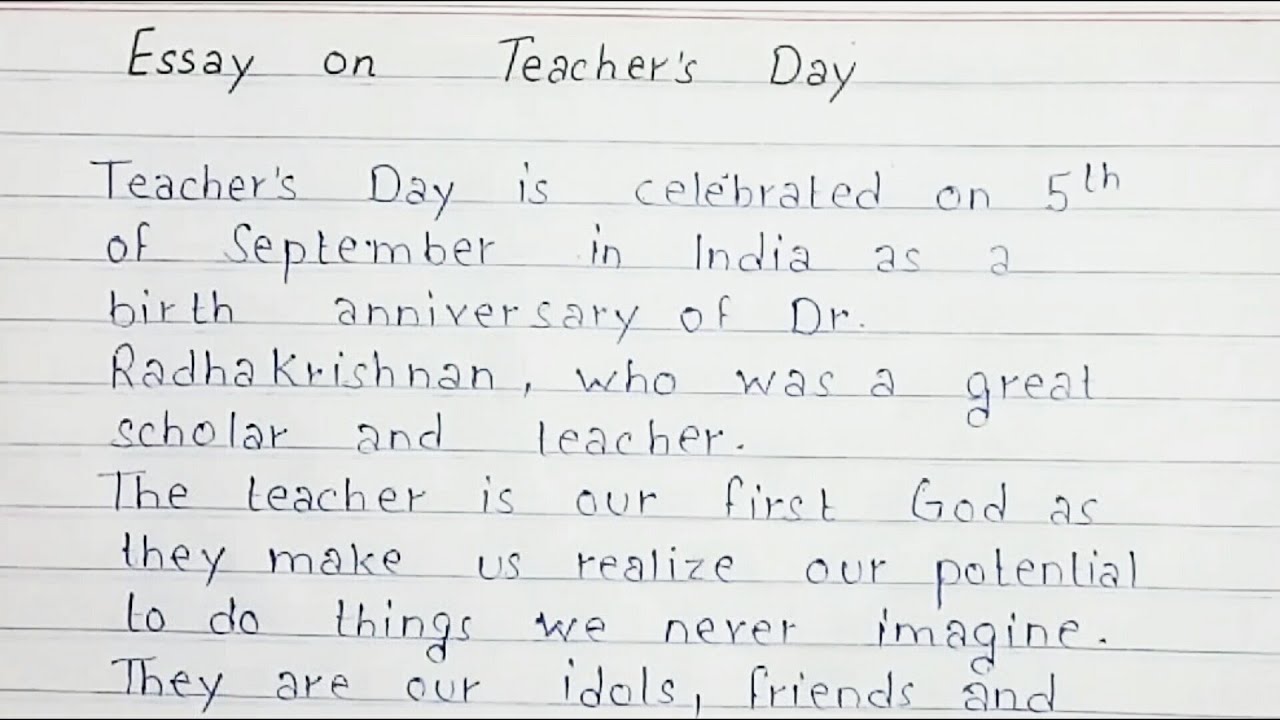 Essay on Teacher's Day
Teacher's Day is celebrated on 5th
of September in India as a
birth anniversary of Dr.
Radhakrishnan, who was a great
scholar and teacher.
The teacher is our first God as
they make us realize our potential
to do things we never imagine.
They are our idols, friends and